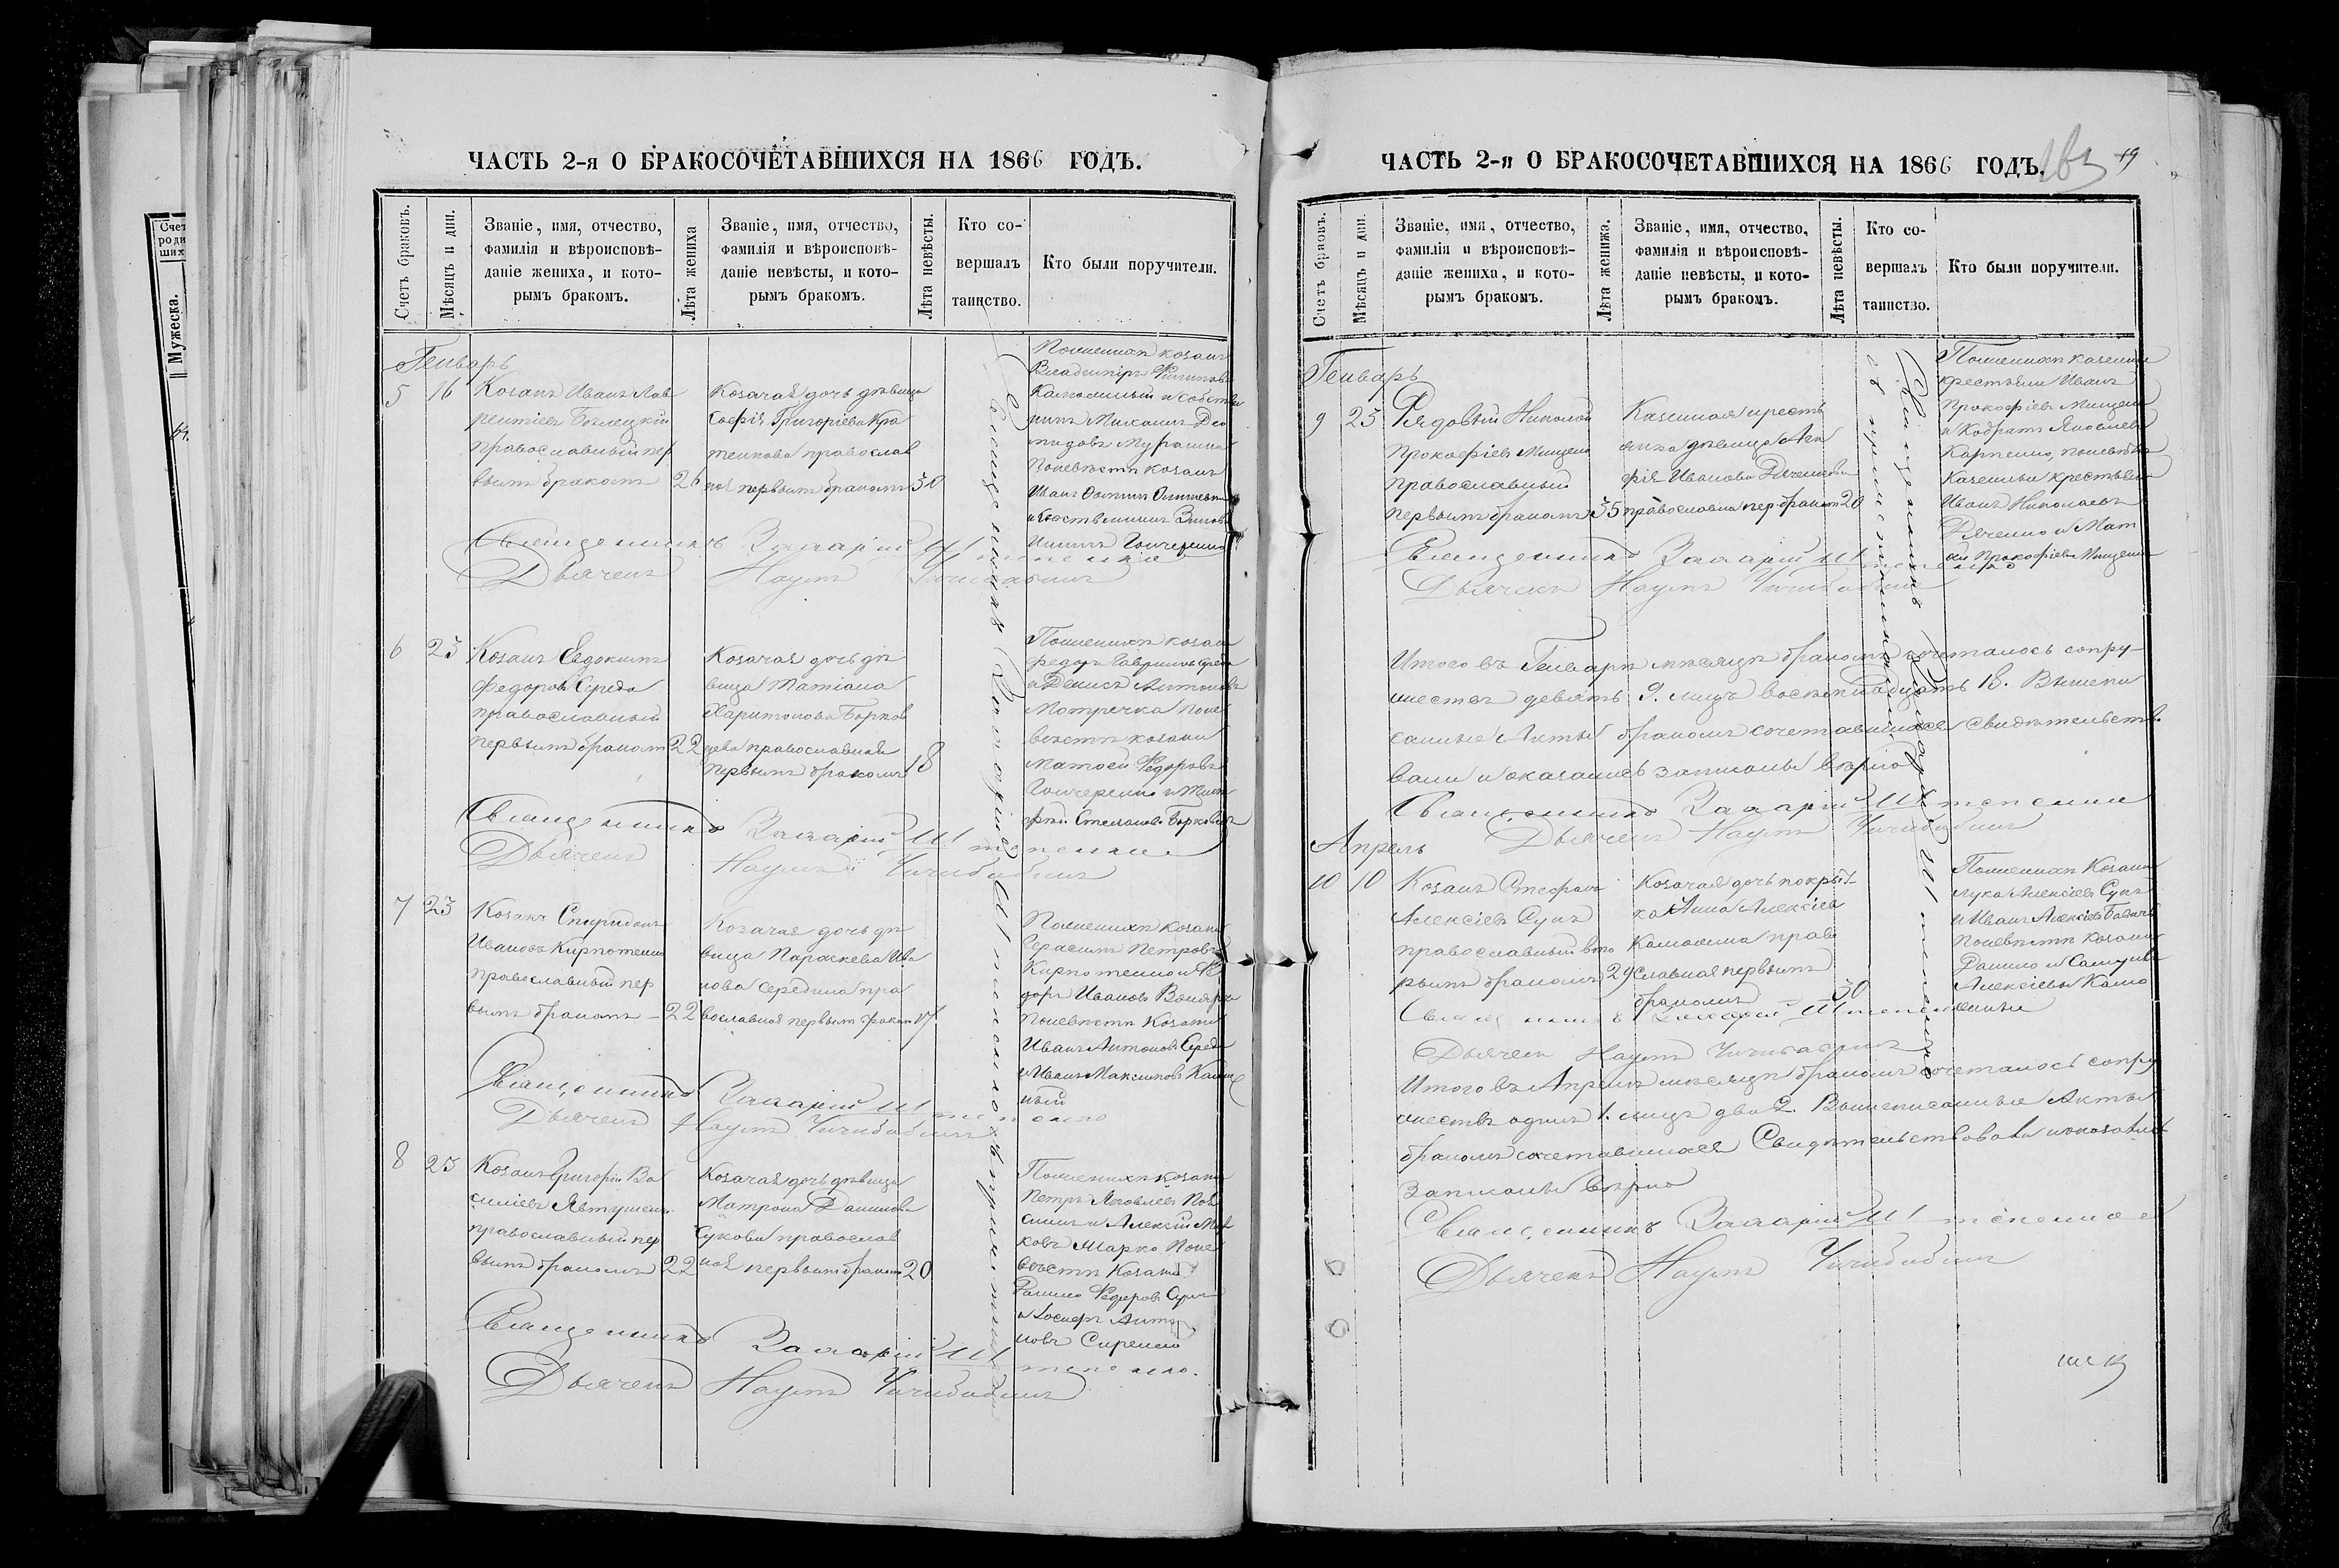 ЧАСТЬ 2-я О БРАКОСОЧЕТАВШИХСЯ НА 1866 ГОДЪ.
Счетъ браковъ.
Мѣсяцъ и дни.
Званіе, имя, отчество,
фамилія и вѣроисповѣ-
даніе жениха, и кото-
рымъ бракомъ.
Лѣта жениха
Званіе, имя, отчество,
фамилія и вѣроисповѣ-
даніе невѣсты, и кото-
рымъ бракомъ.
Лѣта невѣсты.
Кто со-
вершалъ
таинство.
Кто были поручители.
Генварь
5
16
Козакъ Иванъ Лав
рентіевъ Билецкій
православный пер
вымъ бракомъ
26
Козачая дочь дѣвица
Софія Григоріева
православ
ная первымъ бракомъ
30
Пожениху козакъ
Владиміръ
Иванъ
Священникъ Захарій Штепенко
Дьячекъ Наумъ Чичибабинъ
6
23
Козакъ Евдокимъ
Федоровъ Середа
православный
первымъ бракомъ
22
Козачая дочь дѣ
вица Татіана
Харитонова Борков
цева православная
первымъ бракомъ
18
Пожениху козаки
Федоръ Гавриловъ Середа
и Денисъ Антоновъ
Мотречка поне
вѣстѣ козаки
Матвей Федоровъ
Гончаренко и Тимо
фей Степановъ Борковецъ
Священникъ Захарій Штепенко
Дьячекъ Наумъ Чичибабинъ
7
23
Козакъ Спиридонъ
Ивановъ Кирпотенко
православный пер
вымъ бракомъ
22
Козачая дочь дѣ
вица Параскева Ива
нова Середина пра
вославная первым бракам
17
Пожениху козаки
Герасимъ Петровъ
Кирпотенко и Фе
доръ Ивановъ
Поневѣстѣ Козаки
Иванъ Антоновъ Середа
и Иванъ Максимовъ
ный
Священникъ Захарій Штепенко
Дьячекъ Наумъ Чичибабинъ
8
23
Козакъ Григорій Ва
силіевъ Явтушенко
православный пер
вымъ бракомъ
22
Козачая дочь дѣвица
Матрона Данилова
Сукова православ
ная первымъ бракомъ
20
Пожениху козаки
Петръ Яковлевъ
и Алексій
Марко Поне
вѣстѣ Козаки
Данило Федоровъ
и Іосифъ Анто
новъ Сиренко
Священникъ Захарій Штепенко.
Дьячекъ Наумъ Чичибабинъ
Священникъ Захарій Штепенко съ причетникомъ
ЧАСТЬ 2-я О БРАКОСОЧЕТАВШИХСЯ НА 1866 ГОДЪ.
163
19
Счетъ браковъ.
Мѣсяцъ и дни.
Званіе, имя, отчество,
фамилія и вѣроисповѣ-
даніе жениха, и кото-
рымъ бракомъ.
Лѣта жениха.
Званіе, имя, отчество,
фамилія и вѣроисповѣ-
даніе невѣсты, и кото-
рымъ бракомъ.
Лѣта невѣсты.
Кто со-
вершалъ
таинство.
Кто были поручители.
Генварь
9
23
Рядовый Николай
Прокофіевъ Мищенко
православный
первымъ бракомъ
35
Казенная кресть
янка дѣвица Ага
фія Иванова Дяченкова
православна пер бракомъ
20
Пожениху казенные
крестьяне Иванъ
Прокофіевъ Мищенко
и Кодратъ Яковлевъ
Карпенко, поневѣстѣ
Казенные крестьяне
Иванъ Николаевъ
Дяченко и Мат
вей Прокофіевъ Мищенко
Священникъ Захарій Штепенко
Дьячекъ Наумъ Чичибабинъ
Итого въ Генварѣ мѣсяцѣ бракомъ сочеталось супру
жествъ девять 9. лицъ восемнадцать 18. Вышепи
санные Акты бракомъ сочетавшихся свидѣтельство
вали и оказались записаны вѣрно
Священникъ Захарій Штепенко
Дьячекъ Наумъ Чичибабинъ
Апрель
10
10
Козакъ Стефанъ
Алексіевъ Сукъ
православный вто
рымъ бракомъ
29
Козачая дочь покрыт
ка Анна Алексіева
право
славная первымъ
бракомъ
30
Пожениху Козаки
Лука Алексіевъ Сукъ
и Иванъ Алексіевъ
поневѣстѣ Козаки
Данило и Самуилъ
Алексіевы
Священникъ Захарій Штепенко
Дьячекъ Наумъ Чичибабинъ
Итого въ Апрелѣ мѣсяцѣ бракомъ сочеталось супру
жествъ одинъ 1. лицъ два 2. Вышеписанные Акты
бракомъ сочетавшихся Свидѣтельствовали и оказались
записаны вѣрно
Священникъ Захарій Штепенко
Дьячекъ Наумъ Чичибабинъ
Священникъ Захарій Штепенко
съ причетникомъ
Счет
роди
ших
Мужеска.